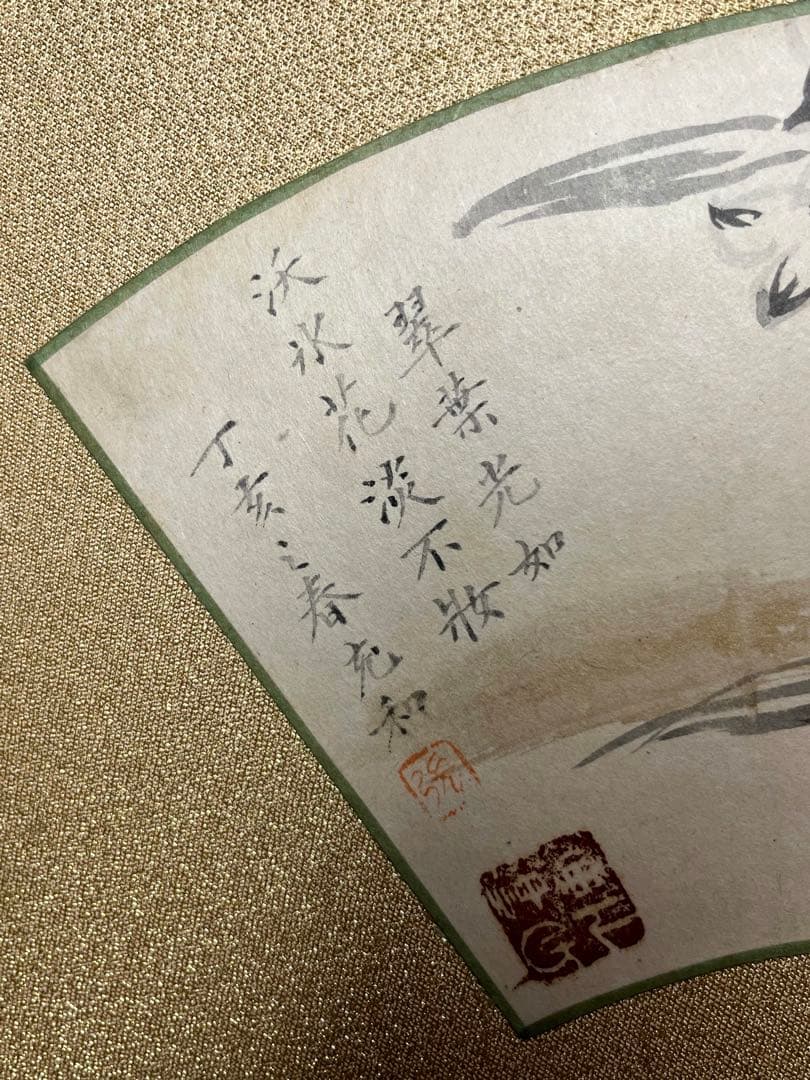 翠葉光如
沃氷花淡不妝
丁亥之春充和